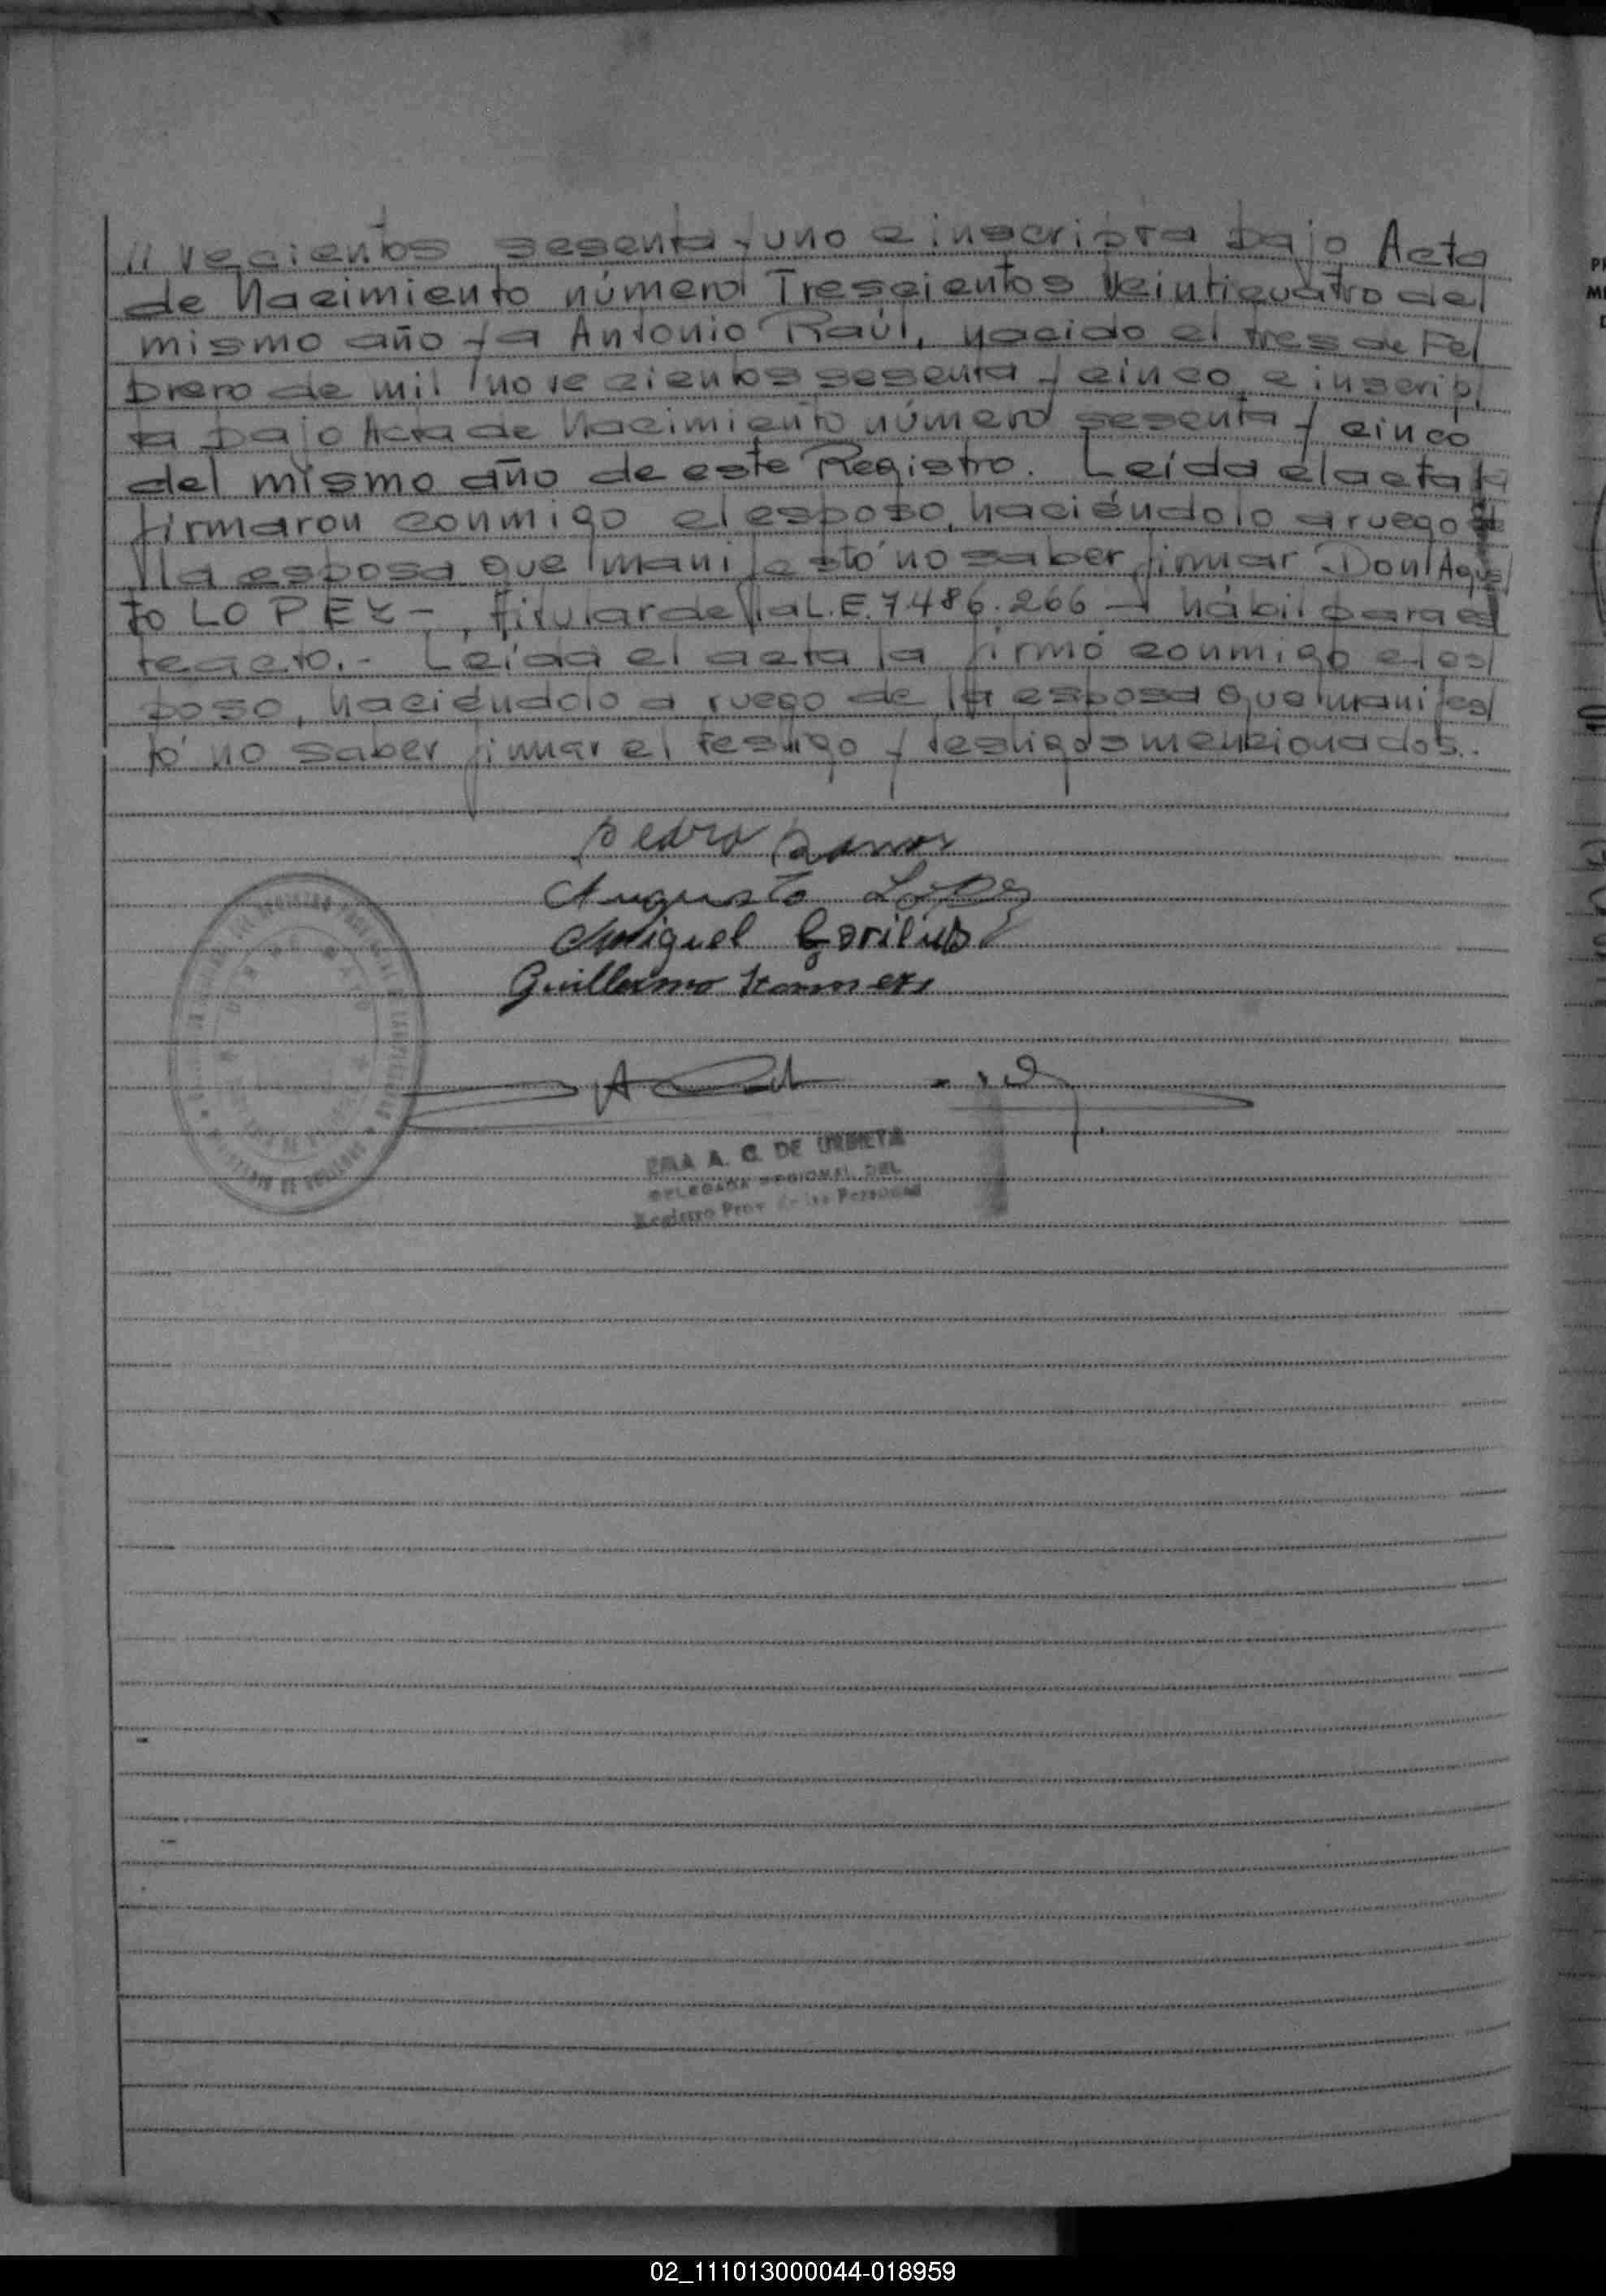 // vecientos sesenta y uno e inscripta bajo Acta
de Nacimiento número Trescientos Veinticuatro del
mismo año y a Antonio Raúl, nacido el tres de Fe/
brero de mil novecientos sesenta y cinco e inscrip/
ta bajo Acta de Nacimiento número sesenta y cinco
del mismo año de este Registro. Leída el acta la
firmaron conmigo el esposo, haciéndolo a ruego de
la esposa que manifestó no saber firmar Don Agus/
to LOPEZ-, titular de la L.E. 7.486.266 - hábil para el
. - Leída el acta la firmó conmigo el es/
poso, haciéndolo a ruego de la esposa que manifes/
tó no saber firmar el testigo y testigos mencionados.-
Pedro Ramos
Augusto Lopez
Miguel
Guillermo
A. C. DE URBIETA
DELEGADA REGIONAL DEL
Registro Prov. de las Personas
PR
MI
02_111013000044-018959